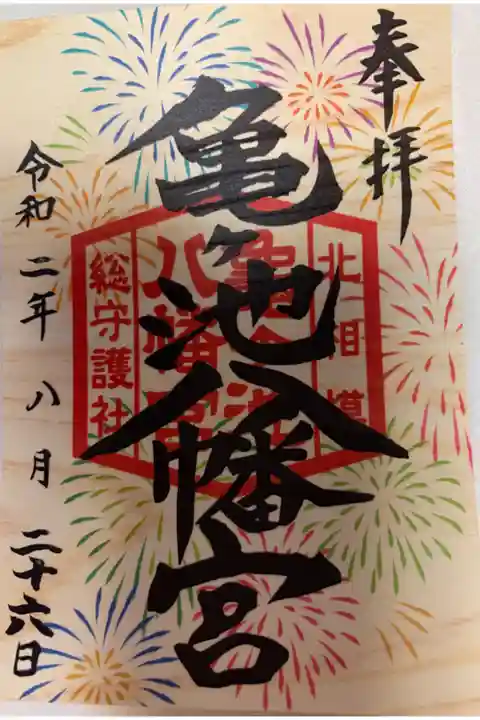 奉拝
亀ヶ池八幡宮
北相模
亀ヶ池
八幡宮
総守護社
令和二年八月二十六日